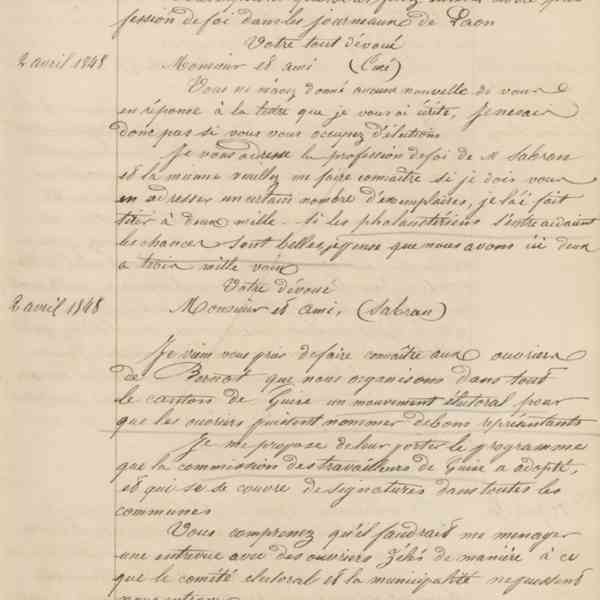 fession de foi dans les journeaux de Laon
Votre tout dévoué
2 avril 1848 Monsieur et ami
Vous ne m'avez donné aucune nouvelle de vous
en réponse à la lettre que je vous ai écrite, Je ne sais
donc pas si vous vous occupez d'élections
Je vous adresse la profession de foi de M Sabran
et la mienne veuillez me faire connaître si je dois vous
en adresser un certain nombre d'exemplaires, je l'ai fait
tirer à deux mille - si les phalanstériens s'entre aidaient
les chances sont belles, je pense que nous avons ici deux
a trois mille voix
Votre dévoué
2 avril 1848 Monsieur et ami, (Sabran)
Je viens vous prier de faire connaître aux ouvriers
de que nous organisons dans tout
le canton de Guise un mouvement électoral pour
que les ouvriers puissent nommer de bons représentants
Je me propose de leur porter le programme
que la commission des travailleurs de Guise a adopté,
et qui se se couvre de signatures dans toutes les
communes
Vous comprenez qu'il faudrait me menager
une entrevue avec des ouvriers zélés de manière à ce
que le comité electoral et la municipalité ne puissent